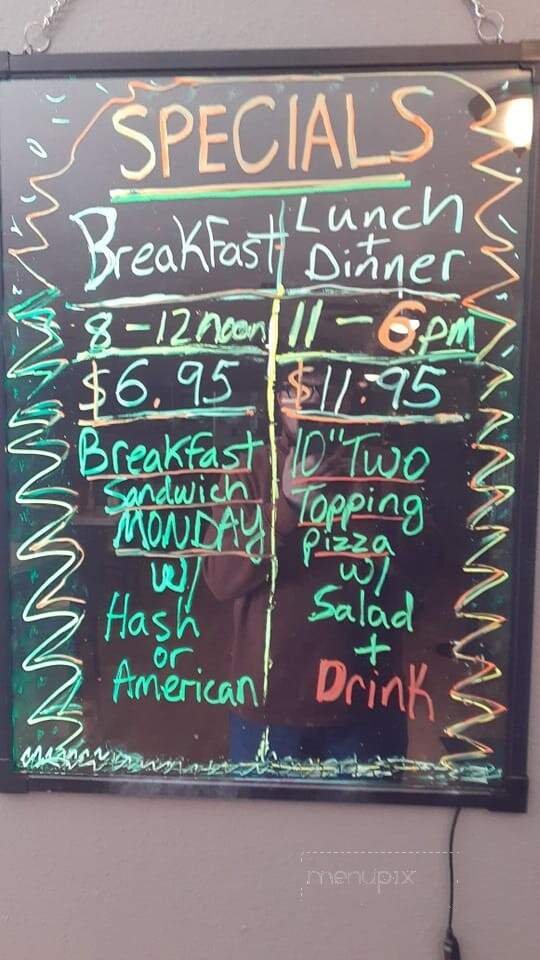 SPECIALS
Breakfast
8-12 noon
$6.95
Breakfast
Sandwich
MONDAY
w/
Hash
or
American
Lunch
+
Dinner
11-6pm
$11.95
10" Two
Topping
pizza
w/
Salad
+
Drink
menupix